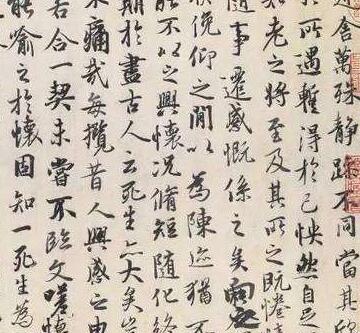 舍萬殊静躁不同當其
於所遇暫得於己怏然自
知老之將至及其所之既惓
隨事遷感慨係之矣向
欣俛仰之間以為陳迹猶不
能不以之興懷況脩短隨化終
期於盡古人云死生亦大矣豈
不痛哉每攬昔人興感之由
若合一契未嘗不臨文嗟悼
能喻之於懷固知一死生為